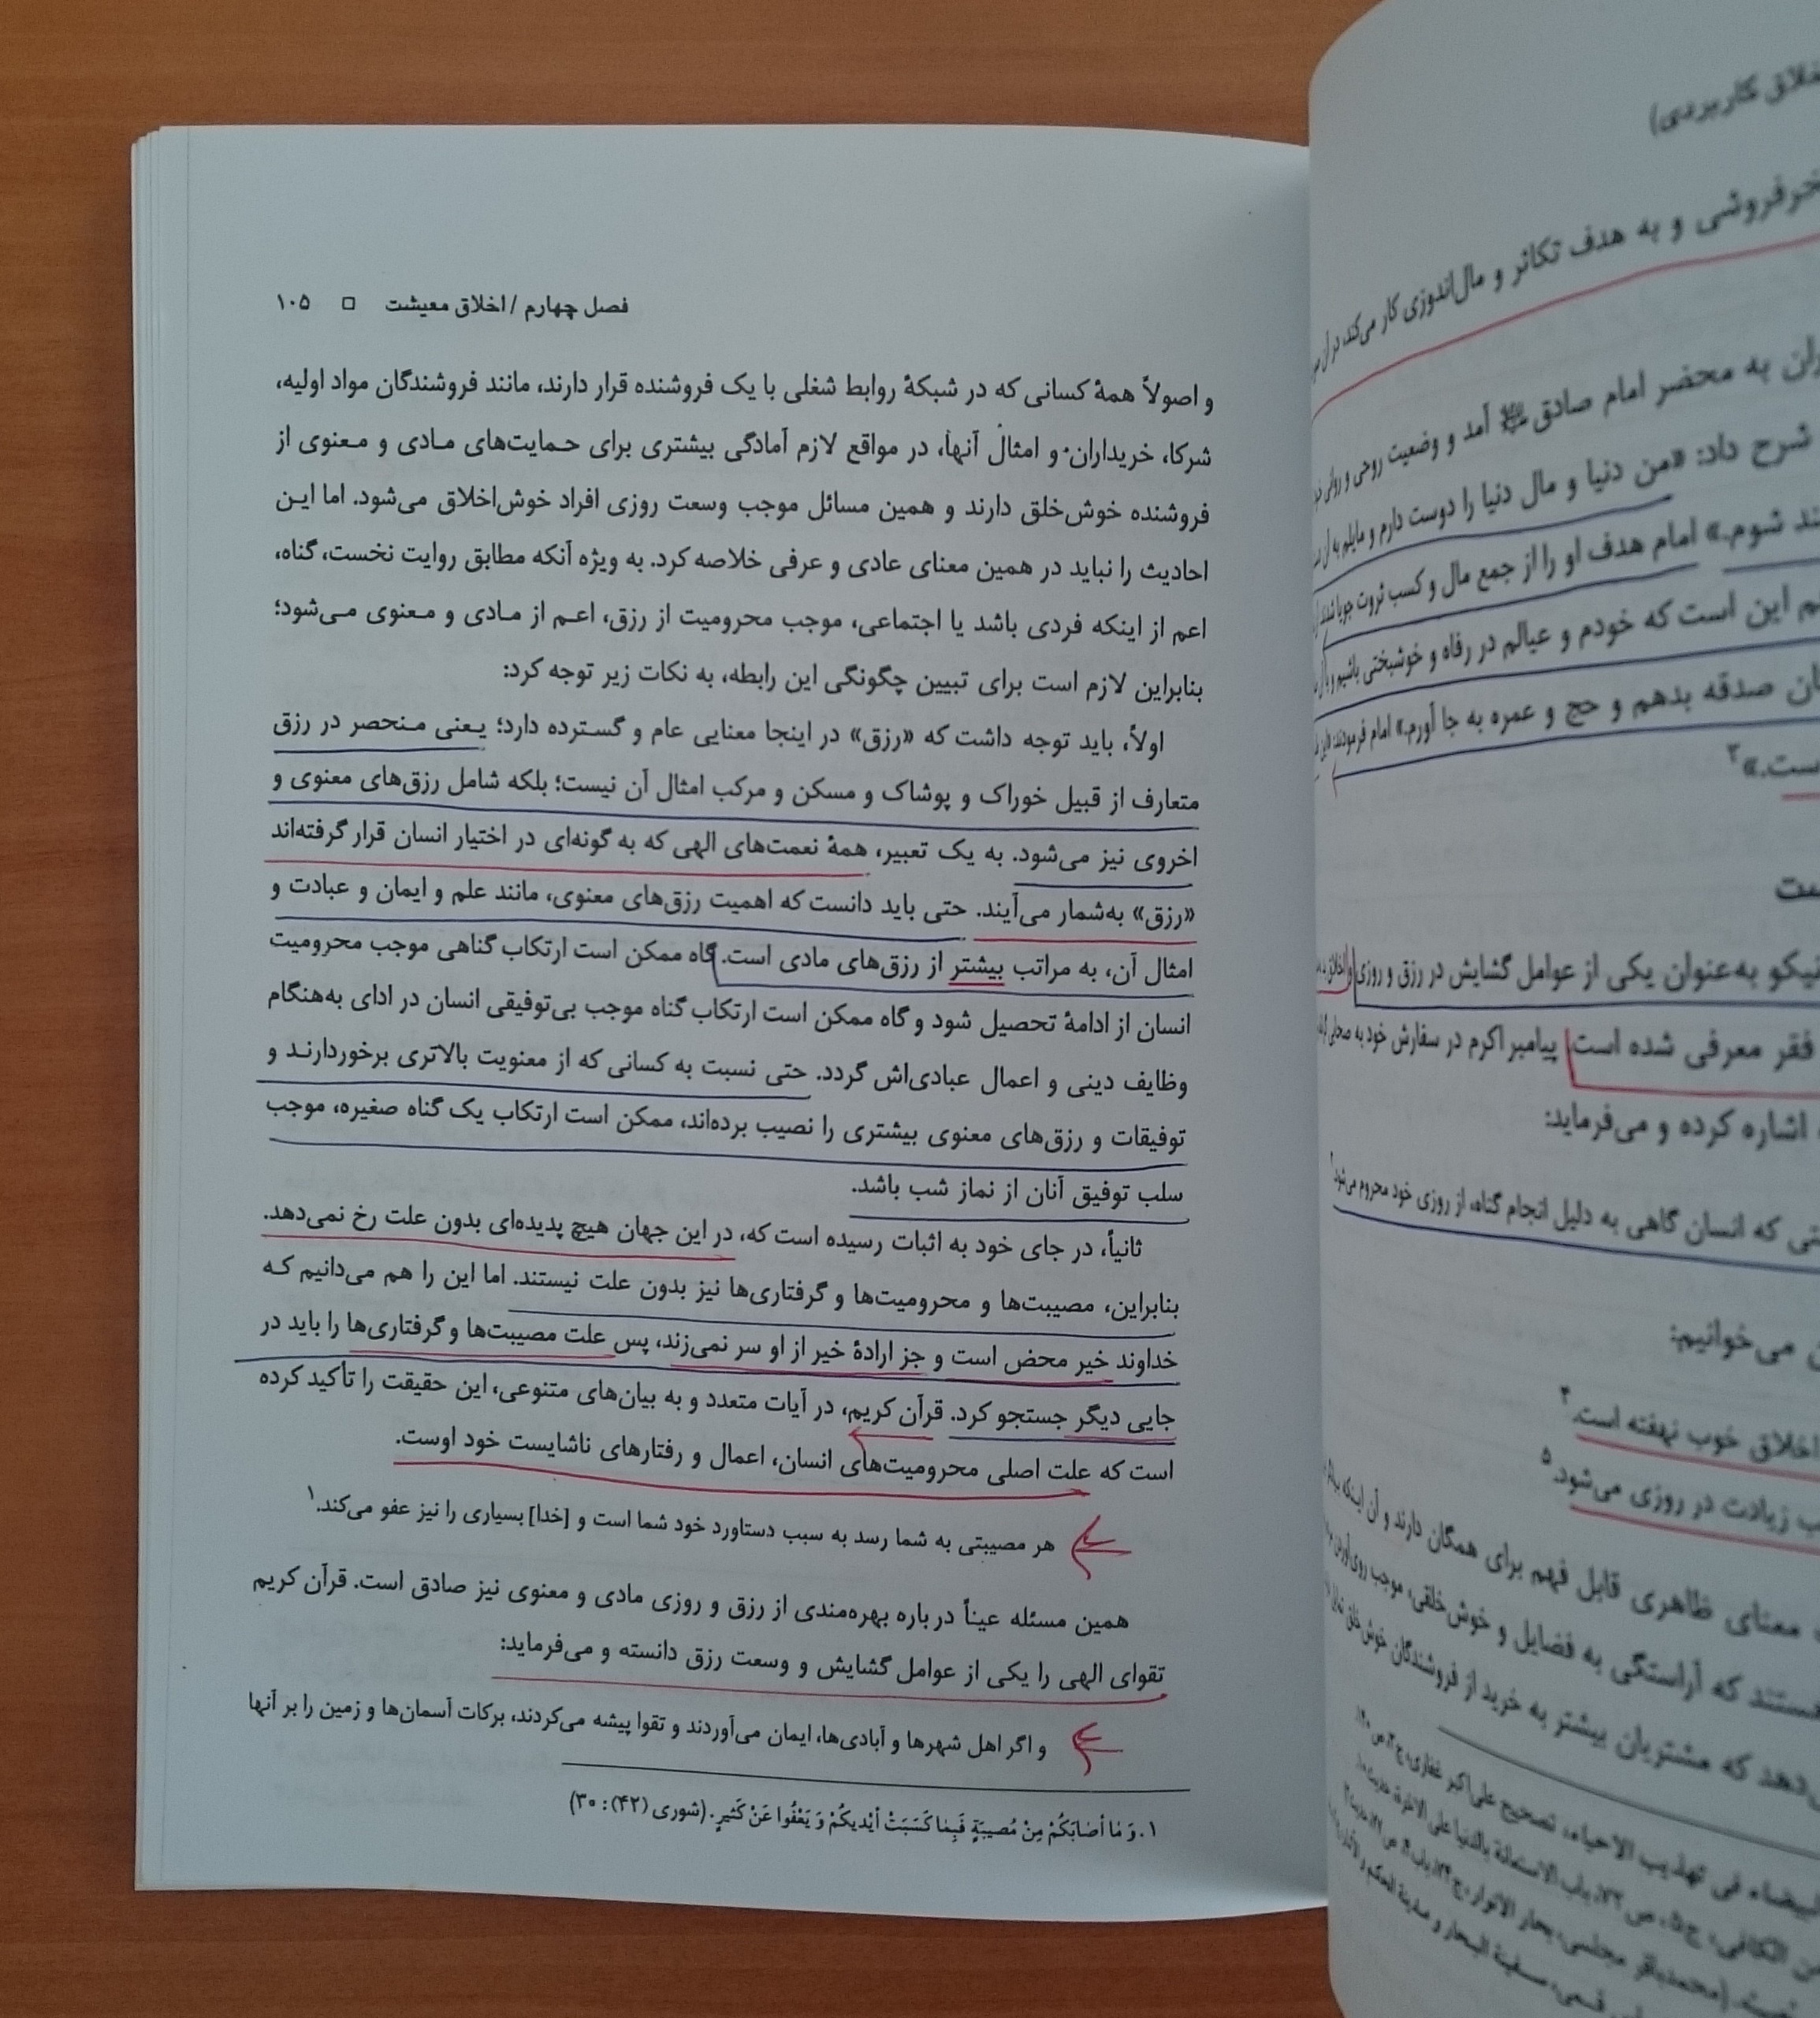 فصل چهارم / اخلاق معیشت □ ۱۰۵
و اصولاً همهٔ کسانی که در شبکهٔ روابط شغلی با یک فروشنده قرار دارند، مانند فروشندگان مواد اولیه،
شرکا، خریداران و امثال آنها، در مواقع لازم آمادگی بیشتری برای حمایت‌های مادی و معنوی از
فروشنده خوش‌خلق دارند و همین مسائل موجب وسعت روزی افراد خوش‌اخلاق می‌شود. اما این
احادیث را نباید در همین معنای عادی و عرفی خلاصه کرد. به ویژه آنکه مطابق روایت نخست، گناه،
اعم از اینکه فردی باشد یا اجتماعی، موجب محرومیت از رزق، اعم از مادی و معنوی می‌شود؛
بنابراین لازم است برای تبیین چگونگی این رابطه، به نکات زیر توجه کرد:
اولاً، باید توجه داشت که «رزق» در اینجا معنایی عام و گسترده دارد؛ یعنی منحصر در رزق
متعارف از قبیل خوراک و پوشاک و مسکن و مرکب امثال آن نیست؛ بلکه شامل رزق‌های معنوی و
اخروی نیز می‌شود. به یک تعبیر، همهٔ نعمت‌های الهی که به گونه‌ای در اختیار انسان قرار گرفته‌اند
«رزق» به‌شمار می‌آیند. حتی باید دانست که اهمیت رزق‌های معنوی، مانند علم و ایمان و عبادت و
امثال آن، به مراتب بیشتر از رزق‌های مادی است. گاه ممکن است ارتکاب گناهی موجب محرومیت
انسان از ادامهٔ تحصیل شود و گاه ممکن است ارتکاب گناه موجب بی‌توفیقی انسان در ادای به‌هنگام
وظایف دینی و اعمال عبادی‌اش گردد. حتی نسبت به کسانی که از معنویت بالاتری برخوردارند و
توفیقات و رزق‌های معنوی بیشتری را نصیب برده‌اند، ممکن است ارتکاب یک گناه صغیره، موجب
سلب توفیق آنان از نماز شب باشد.
ثانیاً، در جای خود به اثبات رسیده است که، در این جهان هیچ پدیده‌ای بدون علت رخ نمی‌دهد.
بنابراین، مصیبت‌ها و محرومیت‌ها و گرفتاری‌ها نیز بدون علت نیستند. اما این را هم می‌دانیم که
خداوند خیر محض است و جز ارادهٔ خیر از او سر نمی‌زند، پس علت مصیبت‌ها و گرفتاری‌ها را باید در
جایی دیگر جستجو کرد. قرآن کریم، در آیات متعدد و به بیان‌های متنوعی، این حقیقت را تأکید کرده
است که علت اصلی محرومیت‌های انسان، اعمال و رفتارهای ناشایست خود اوست.
هر مصیبتی به شما رسد به سبب دستاورد خود شما است و [خدا] بسیاری را نیز عفو می‌کند.۱
همین مسئله عیناً درباره بهره‌مندی از رزق و روزی مادی و معنوی نیز صادق است. قرآن کریم
تقوای الهی را یکی از عوامل گشایش و وسعت رزق دانسته و می‌فرماید:
و اگر اهل شهرها و آبادی‌ها، ایمان می‌آوردند و تقوا پیشه می‌کردند، برکات آسمان‌ها و زمین را بر آنها
۱. وَ مٰا أَصٰابَکُمْ مِنْ مُصیبَةٍ فَبِمٰا کَسَبَتْ أَیْدیکُمْ وَ یَعْفُوا عَنْ کَثیرٍ. (شوری (۴۲): ۳۰)
اخلاق کاربردی)
فخرفروشی و به هدف تکاثر و مال‌اندوزی کار می‌کند، در آن
به محضر امام صادق آمد و وضعیت روحی و روانی
شرح داد: «من دنیا و مال دنیا را دوست دارم و مایلم به آن
شوم.» امام هدف او را از جمع مال و کسب ثروت جویا شدند
این است که خودم و عیالم در رفاه و خوشبختی باشیم و با آن
صدقه بدهم و حج و عمره به جا آورم.» امام فرمودند: «این
است.»۳
نیکو به‌عنوان یکی از عوامل گشایش در رزق و روزی و اخلاق
فقر معرفی شده است. پیامبر اکرم در سفارش خود به صحابی
اشاره کرده و می‌فرماید:
که انسان گاهی به دلیل انجام گناه، از روزی خود محروم می‌شود.
می‌خوانیم:
اخلاق خوب نهفته است.۴
زیادت در روزی می‌شود.۵
معنای ظاهری قابل فهم برای همگان دارند و آن اینکه
هستند که آراستگی به فضایل و خوش‌خلقی، موجب روی‌آوردن
که مشتریان بیشتر به خرید از فروشندگان خوش‌خلق
البیضاء فی تهذیب الاحیاء، تصحیح علی‌اکبر غفاری، ج۳، ص
الکافی، ج۵، ص ۷۲، باب الاستعانة بالدنیا علی الآخرة، حدیث ۱۰.